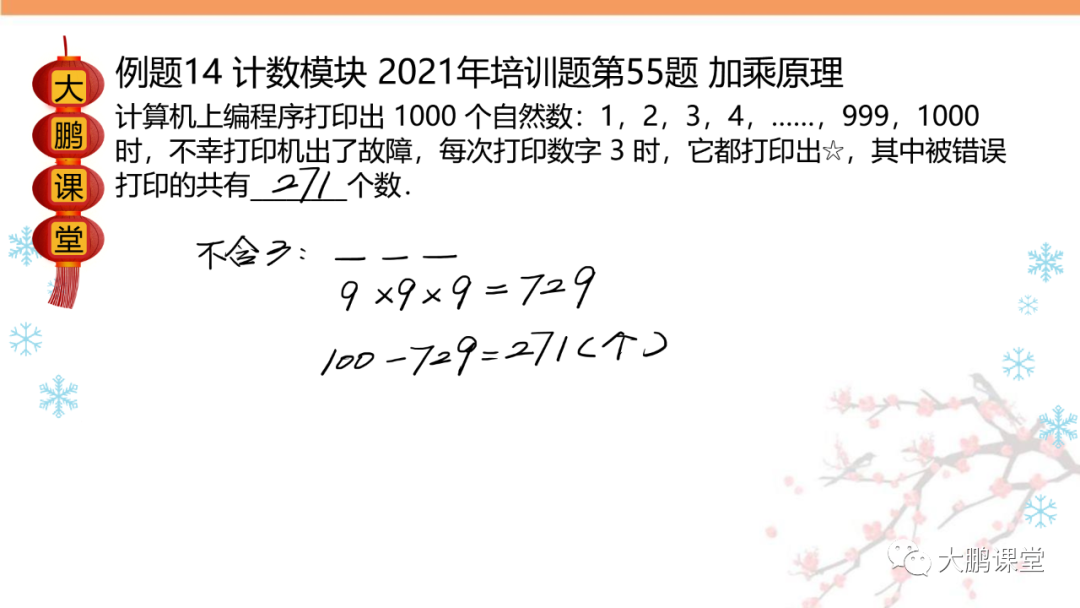 大鹏课堂
例题14 计数模块 2021年培训题第55题 加乘原理
计算机上编程序打印出 1000 个自然数：1，2，3，4，……，999，1000
时，不幸打印机出了故障，每次打印数字 3 时，它都打印出☆，其中被错误
打印的共有 271 个数．
不含3：
9×9×9=729
100-729=271(个)
大鹏课堂